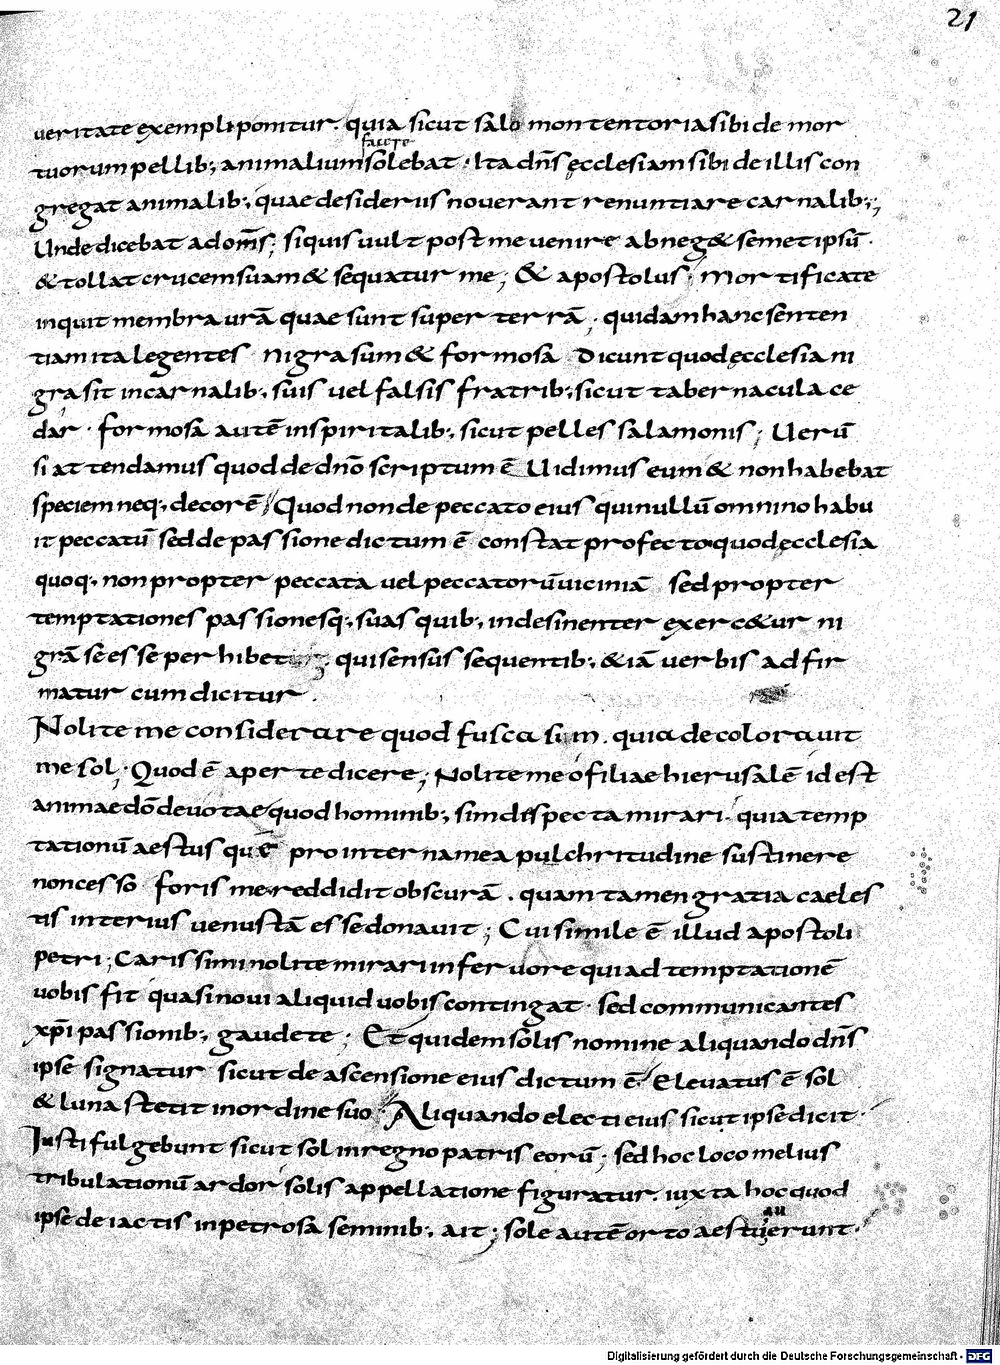 21
ueritate exempli ponitur. quia sicut salomon tentoria sibi de mor
facere
tuorum pellib; animalium solebat. Ita dñs ęcclesiam sibi de illis con
gregat animalib; quae desideriis nouerant renuntiare carnalib;
Unde dicebat ad om̅s; siquis uult post me uenire abneg& semetipsū.
& tollat crucem suam & sequatur me; & apostolus; Mortificate
inquit membra urā quae sunt super terrā. quidam hanc senten
tiam ita legentes nigra sum & formosa Dicunt quod ęcclesia ni
gra sit in carnalib; suis uel falsis fratrib; sicut tabernacula ce
dar. formosa autē in spiritalib; sicut pelles salamonis; Uerū
si attendamus quod de dño scriptum ē Uidimus eum & non habebat
speciem neq; decorē Quod non de peccato eius qui nullū omnino habu
it peccatū sed de passione dictum ē constat profecto quod ęcclesia
quoq; non propter peccata uel peccatorū uiciniā sed propter
temptationes passionesq; suas quib; indesinenter exerc&ur ni
grā se esse perhibet qui sensus sequentib; & iā uerbis adfir
matur cum dicitur.
Nolite me considerare quod fusca sim. quia decolorauit
me sol; Quod ē aperte dicere; Nolite me o filiae hierusalē id est
animae dō deuotae quod hominib; sim despecta mirari. quia temp
tationū aestus quē pro internamea pulchritudine sustinere
non cesso foris me reddidit obscurā. quam tamen gratia caeles
tis interius uenustā esse donauit; Cui simile ē illud apostoli
petri; Carissimi nolite mirari in feruore qui ad temptationē
uobis fit quasi noui aliquid uobis contingat. sed communicantes
xp̄i passionib; gaudete; Et quidem solis nomine aliquando dñs
ipse signatur sicut de ascensione eius dictum ē. Eleuatus ē sol
& luna stetit in ordine suo. Aliquando electi eius sicut ipse dicit.
Iusti fulgebunt sicut sol in regno patris eorū; sed hoc loco melius
tribulationū ardor solis appellatione figuratur. iuxta hoc quod
au
ipse de iactis in petrosa seminib; ait; sole autē orto aestuerunt.
Digitalisierung gefördert durch die Deutsche Forschungsgemeinschaft - DFG